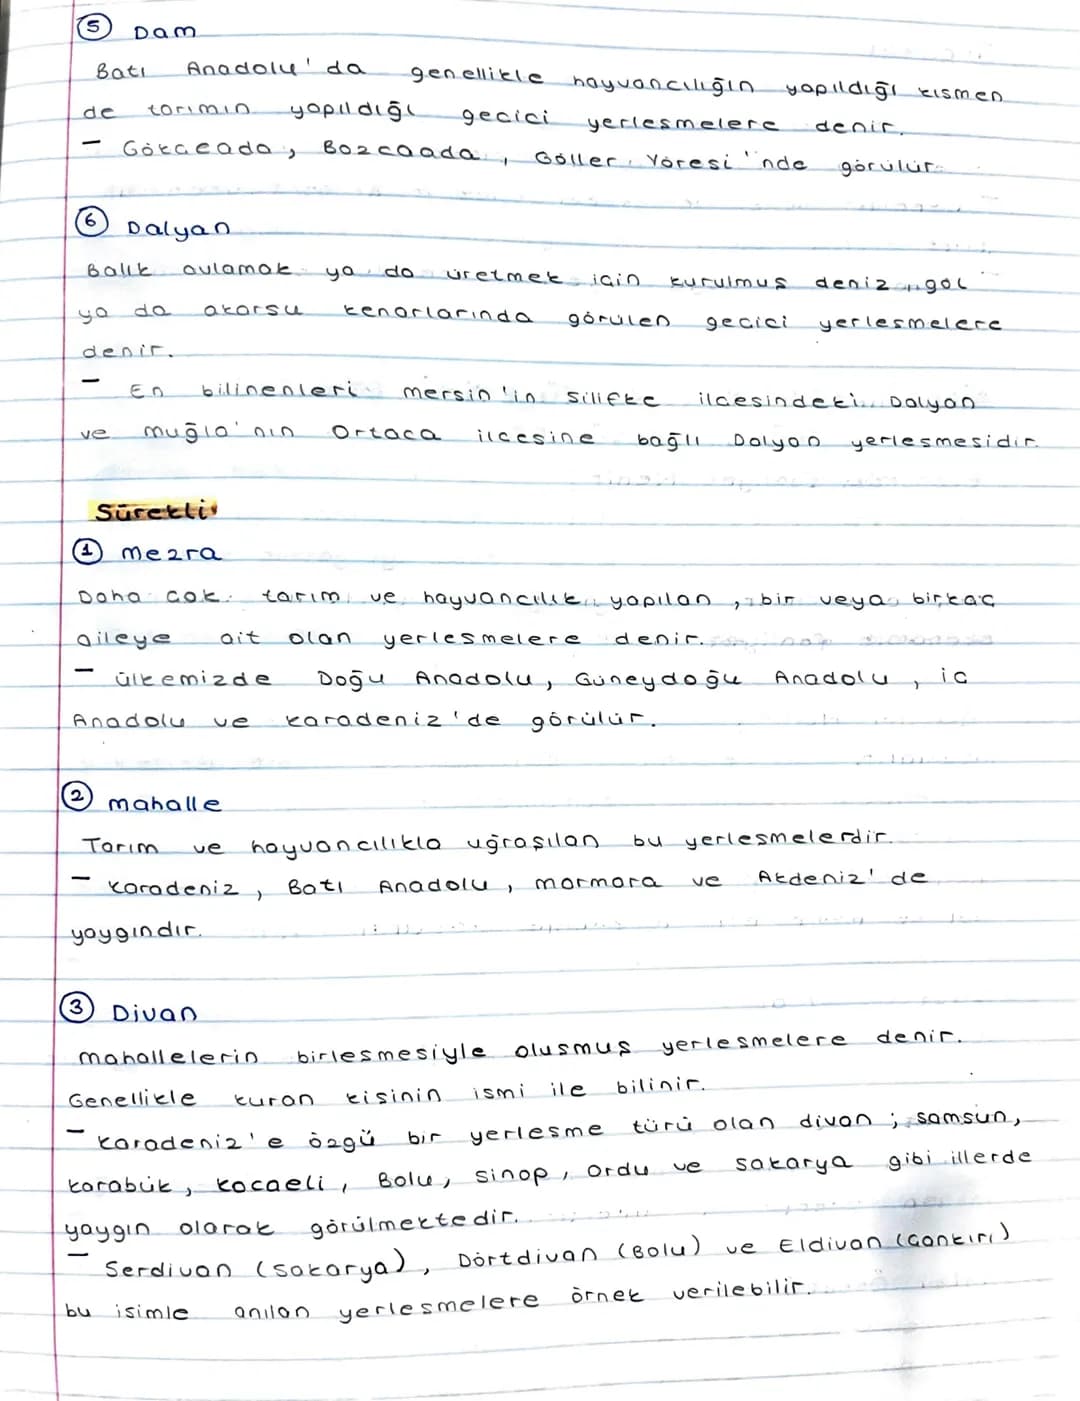 ⑤ Dam
Batı Anadolu'da genellikle hayvancılığın yapıldığı kısmen
de tarımın yapıldığı gecici yerlesmelere denir.
- Gökceada, Bozcaada, Göller Yöresi'nde görülür.
⑥ Dalyan
Balık avlamak ya da üretmek icin kurulmus deniz, göl
ya da akarsu kenarlarında görülen gecici yerlesmelere
denir.
- En bilinenleri mersin'in Silifke ilcesindeki Dalyan
ve muğla'nın Ortaca ilcesine bağlı Dalyan yerlesmesidir.
Sürekli
① mezra
Daha cok tarım ve hayvancılık yapılan, bir veya birkac
aileye ait olan yerlesmelere denir.
- ülkemizde Doğu Anadolu, Güneydoğu Anadolu, ic
Anadolu ve karadeniz'de görülür.
② mahalle
Tarım ve hayvancılıkla uğraşılan bu yerlesmelerdir.
- karadeniz, Batı Anadolu, marmara ve Akdeniz'de
yaygındır.
③ Divan
mahallelerin birlesmesiyle olusmus yerlesmelere denir.
Genellikle kuran kisinin ismi ile bilinir.
- karadeniz'e özgü bir yerlesme türü olan divan; samsun,
karabük, kocaeli, Bolu, sinop, ordu ve sakarya gibi illerde
yaygın olarak görülmektedir.
- Serdivan (sakarya), Dörtdivan (Bolu) ve Eldivan (Cankırı)
bu isimle anılan yerlesmelere örnek verilebilir.